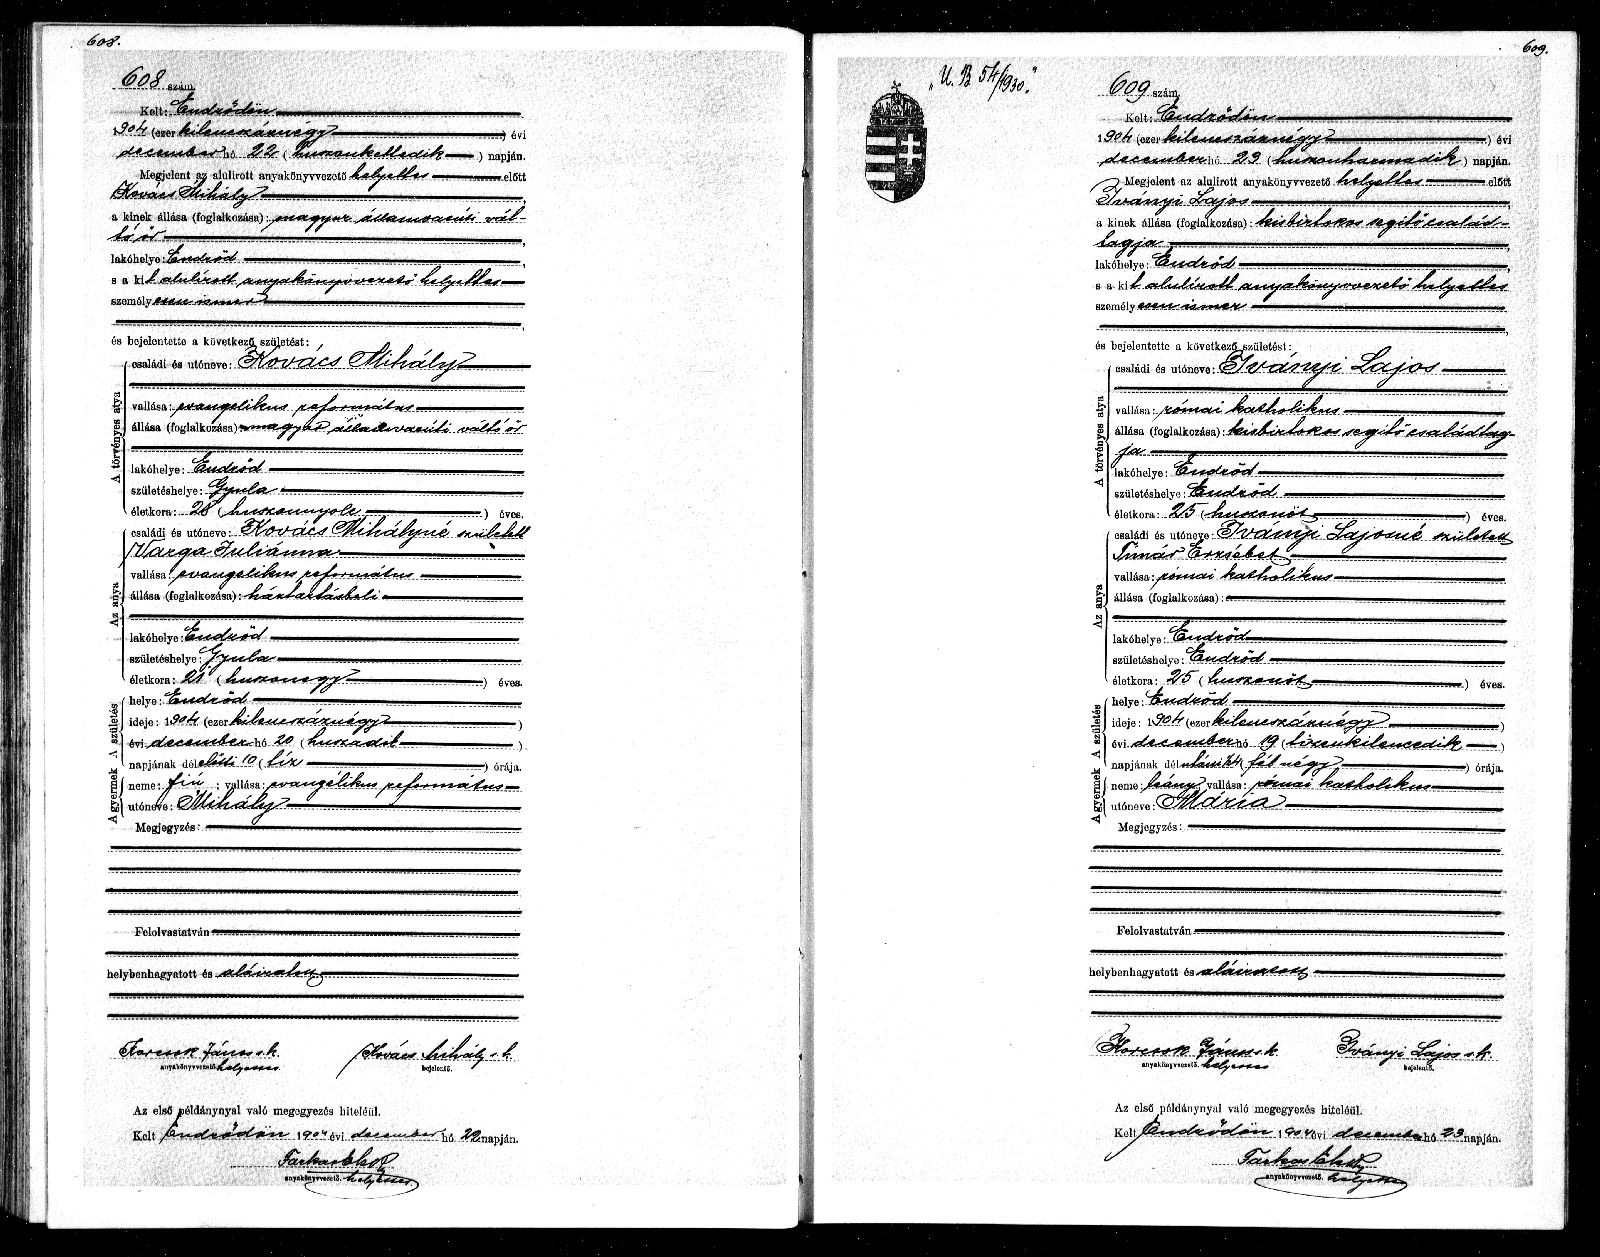 608.
608 szám
Kelt: Endrődön
1904 (ezer kilencszáznégy) évi
december hó 22 (huszonkettedik) napján.
Megjelent az alulirott anyakönyvvezető helyettes előtt
Kovács Mihály
a kinek állása (foglalkozása): magyar államvasúti vál-
tó őr
lakóhelye: Endrőd
s a kit alulírott anyakönyvvezető helyettes
személyesen ismer
és bejelentette a következő születést:
A törvényes atya
családi és utóneve: Kovács Mihály
vallása: evangelikus református
állása (foglalkozása): magyar államvasúti váltó őr
lakóhelye: Endrőd
születéshelye: Gyula
életkora: 28 (huszonnyolc) éves.
Az anya
családi és utóneve: Kovács Mihályné született
Varga Juliánna
vallása: evangelikus református
állása (foglalkozása): háztartásbeli
lakóhelye: Endrőd
születéshelye: Gyula
életkora: 21 (huszonegy) éves.
A születés
helye: Endrőd
ideje: 1904 (ezer kilencszáznégy)
évi december hó 20 (huszadik)
napjának délelőtti 10 (tíz) órája.
A gyermek
neme: fiú; vallása: evangélikus református
utóneve: Mihály
Megjegyzés:
Felolvastatván
helybenhagyatott és aláíratott
Korcsok János s.k. Kovács Mihály s.k.
anyakönyvvezető helyettes bejelentő.
Az első példánynyal való megegyezés hiteléül.
Kelt Endrődön 1904 évi december hó 22 napján.
anyakönyvvezető. helyettes
609.
„U. B 54/1930."
609 szám
Kelt: Endrődön
1904 (ezer kilencszáznégy) évi
december hó 23 (huszonharmadik) napján.
Megjelent az alulirott anyakönyvvezető helyettes előtt
Iványi Lajos
a kinek állása (foglalkozása): kisbirtokos segítő család-
tagja
lakóhelye: Endrőd
s a kit alulírott anyakönyvvezető helyettes
személyesen ismer
és bejelentette a következő születést:
A törvényes atya
családi és utóneve: Iványi Lajos
vallása: római katholikus
állása (foglalkozása): kisbirtokos segítő családtag-
ja
lakóhelye: Endrőd
születéshelye: Endrőd
életkora: 25 (huszonöt) éves.
Az anya
családi és utóneve: Iványi Lajosné született
Timár Erzsébet
vallása: római katholikus
állása (foglalkozása):
lakóhelye: Endrőd
születéshelye: Endrőd
életkora: 25 (huszonöt) éves.
A születés
helye: Endrőd
ideje: 1904 (ezer kilencszáznégy)
évi december hó 19 (tizenkilencedik)
napjának délutáni (fél négy) órája.
A gyermek
neme: leány vallása: római katholikus
utóneve: Mária
Megjegyzés:
Felolvastatván
helybenhagyatott és aláíratott
Korcsok János s.k. Iványi Lajos s.k.
anyakönyvvezető. helyettes bejelentő.
Az első példánynyal való megegyezés hiteléül.
Kelt Endrődön 1904 évi december hó 23 napján.
anyakönyvvezető. helyettes